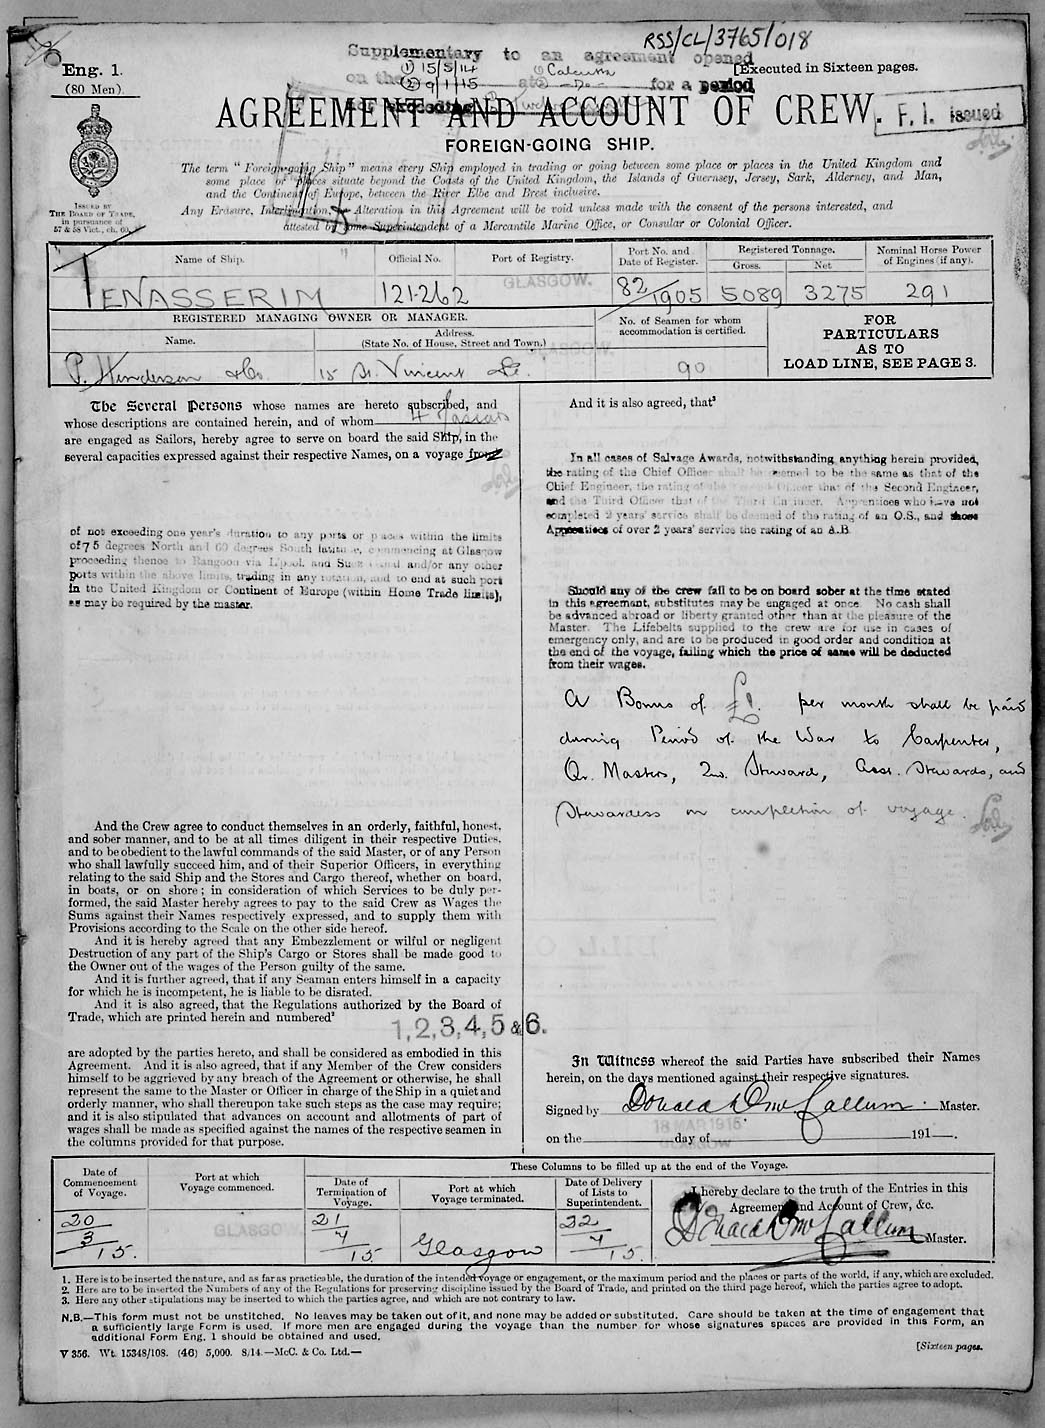 RSS/CL/3765/018
Supplementary to an agreement opened
on the (1) 15/5/14 (2) 9/1/15 at (1) Calcutta (2) -Do- for a period
Eng. 1.
(80 Men).
[Executed in Sixteen pages.
AGREEMENT AND ACCOUNT OF CREW.
F. 1. issued
FOREIGN-GOING SHIP.
ISSUED BY
THE BOARD OF TRADE,
in pursuance of
57 & 58 Vict., ch. 60.
The term "Foreign-going Ship" means every Ship employed in trading or going between some place or places in the United Kingdom and
some place or places situate beyond the Coasts of the United Kingdom, the Islands of Guernsey, Jersey, Sark, Alderney, and Man,
and the Continent of Europe, between the River Elbe and Brest inclusive.
Any Erasure, Interlineation, or Alteration in this Agreement will be void unless made with the consent of the persons interested, and
attested by some Superintendent of a Mercantile Marine Office, or Consular or Colonial Officer.
Name of Ship.
Official No.
Port of Registry.
Port No. and
Date of Register.
Registered Tonnage.
Gross.
Net
Nominal Horse Power
of Engines (if any).
TENASSERIM
121262
GLASGOW.
82/1905
5089
3275
291
REGISTERED MANAGING OWNER OR MANAGER.
Name.
Address.
(State No. of House, Street and Town.)
No. of Seamen for whom
accommodation is certified.
FOR
PARTICULARS
AS TO
LOAD LINE, SEE PAGE 3.
P. Henderson & Co.
15 St. Vincent St.
GLASGOW.
90
The Several Persons whose names are hereto subscribed, and
whose descriptions are contained herein, and of whom 4 Lascars
are engaged as Sailors, hereby agree to serve on board the said Ship, in the
several capacities expressed against their respective Names, on a voyage from
of not exceeding one year's duration to any ports or places within the limits
of 75 degrees North and 60 degrees South latitude, commencing at Glasgow
proceeding thence to Rangoon via L'pool. and Suez Canal and/or any other
ports within the above limits, trading in any rotation, and to end at such port
in the United Kingdom or Continent of Europe (within Home Trade limits),
as may be required by the master.
And the Crew agree to conduct themselves in an orderly, faithful, honest,
and sober manner, and to be at all times diligent in their respective Duties,
and to be obedient to the lawful commands of the said Master, or of any Person
who shall lawfully succeed him, and of their Superior Officers, in everything
relating to the said Ship and the Stores and Cargo thereof, whether on board,
in boats, or on shore; in consideration of which Services to be duly per-
formed, the said Master hereby agrees to pay to the said Crew as Wages the
Sums against their Names respectively expressed, and to supply them with
Provisions according to the Scale on the other side hereof.
And it is hereby agreed that any Embezzlement or wilful or negligent
Destruction of any part of the Ship's Cargo or Stores shall be made good to
the Owner out of the wages of the Person guilty of the same.
And it is further agreed, that if any Seaman enters himself in a capacity
for which he is incompetent, he is liable to be disrated.
And it is also agreed, that the Regulations authorized by the Board of
Trade, which are printed herein and numbered²
1, 2, 3, 4, 5 & 6.
are adopted by the parties hereto, and shall be considered as embodied in this
Agreement. And it is also agreed, that if any Member of the Crew considers
himself to be aggrieved by any breach of the Agreement or otherwise, he shall
represent the same to the Master or Officer in charge of the Ship in a quiet and
orderly manner, who shall thereupon take such steps as the case may require;
and it is also stipulated that advances on account and allotments of part of
wages shall be made as specified against the names of the respective seamen in
the columns provided for that purpose.
And it is also agreed, that³
In all cases of Salvage Awards, notwithstanding anything herein provided,
the rating of the Chief Officer shall be deemed to be the same as that of the
Chief Engineer, the rating of the Second Officer that of the Second Engineer,
and the Third Officer that of the Third Engineer. Apprentices who have not
completed 2 years' service shall be deemed of the rating of an O.S., and those
Apprentices of over 2 years' service the rating of an A.B.
Should any of the crew fail to be on board sober at the time stated
in this agreement, substitutes may be engaged at once. No cash shall
be advanced abroad or liberty granted other than at the pleasure of the
Master. The Lifebelts supplied to the crew are for use in cases of
emergency only, and are to be produced in good order and condition at
the end of the voyage, failing which the price of same will be deducted
from their wages.
A Bonus of £1. per month shall be paid
during Period of the War to Carpenter,
Qr. Masters, 2nd. Steward, Asst. Stewards, and
Stewardess on completion of voyage.
In Witness whereof the said Parties have subscribed their Names
herein, on the days mentioned against their respective signatures.
Signed by Donald McCallum. Master.
18 MAR 1915
GLASGOW
on the day of 191 .
Date of
Commencement
of Voyage.
Port at which
Voyage commenced.
These Columns to be filled up at the end of the Voyage.
Date of
Termination of
Voyage.
Port at which
Voyage terminated.
Date of Delivery
of Lists to
Superintendent.
I hereby declare to the truth of the Entries in this
Agreement and Account of Crew, &c.
20/3/15.
GLASGOW.
21/4/15.
Glasgow
22/4/15.
Donald McCallum Master.
1. Here is to be inserted the nature, and as far as practicable, the duration of the intended voyage or engagement, or the maximum period and the places or parts of the world, if any, which are excluded.
2. Here are to be inserted the Numbers of any of the Regulations for preserving discipline issued by the Board of Trade, and printed on the third page hereof, which the parties agree to adopt.
3. Here any other stipulations may be inserted to which the parties agree, and which are not contrary to law.
N.B.—This form must not be unstitched. No leaves may be taken out of it, and none may be added or substituted. Care should be taken at the time of engagement that
a sufficiently large Form is used. If more men are engaged during the voyage than the number for whose signatures spaces are provided in this Form, an
additional Form Eng. 1 should be obtained and used.
V 356. Wt. 15348/108. (46) 5,000. 8/14.—McC. & Co. Ltd.—
[Sixteen pages.